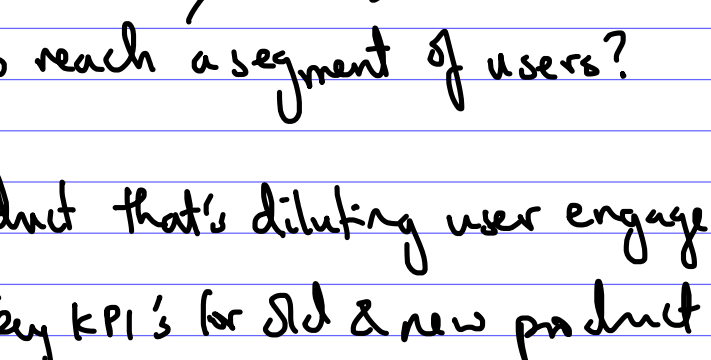 reach a segment of users?
that's diluting user engage
key KPI's for old & new product